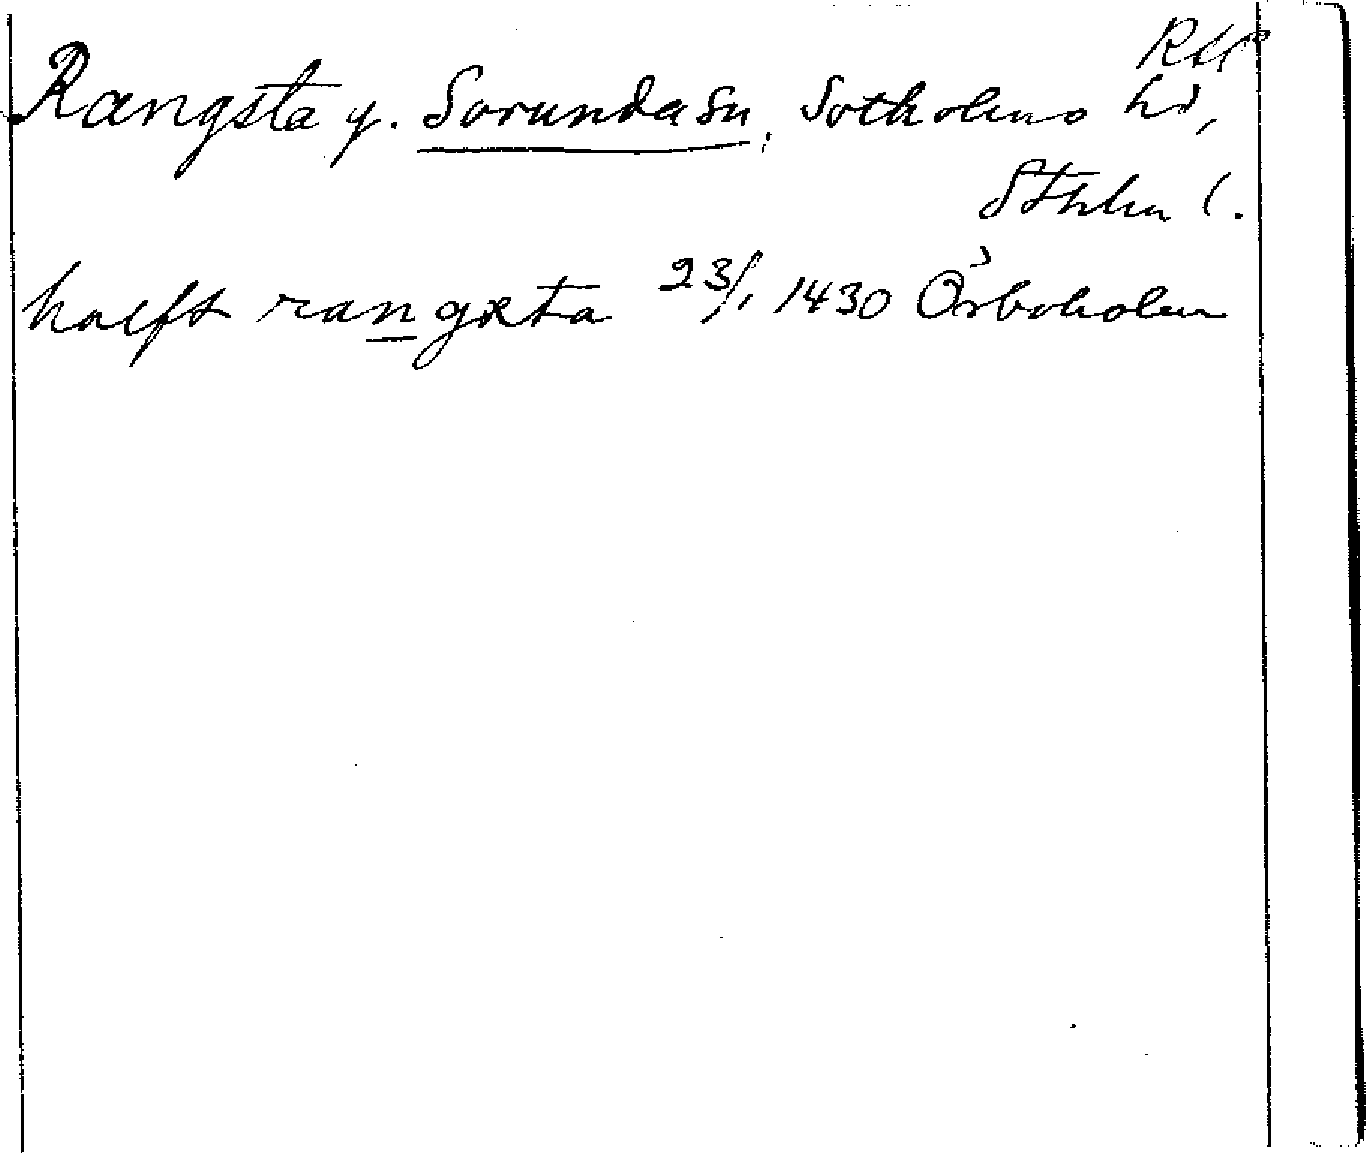 RAP
Rangsta y. Sorunda sn, Sotholms hd,
Sthlm l.
halft rangxta 23/1 1430 Örboholm